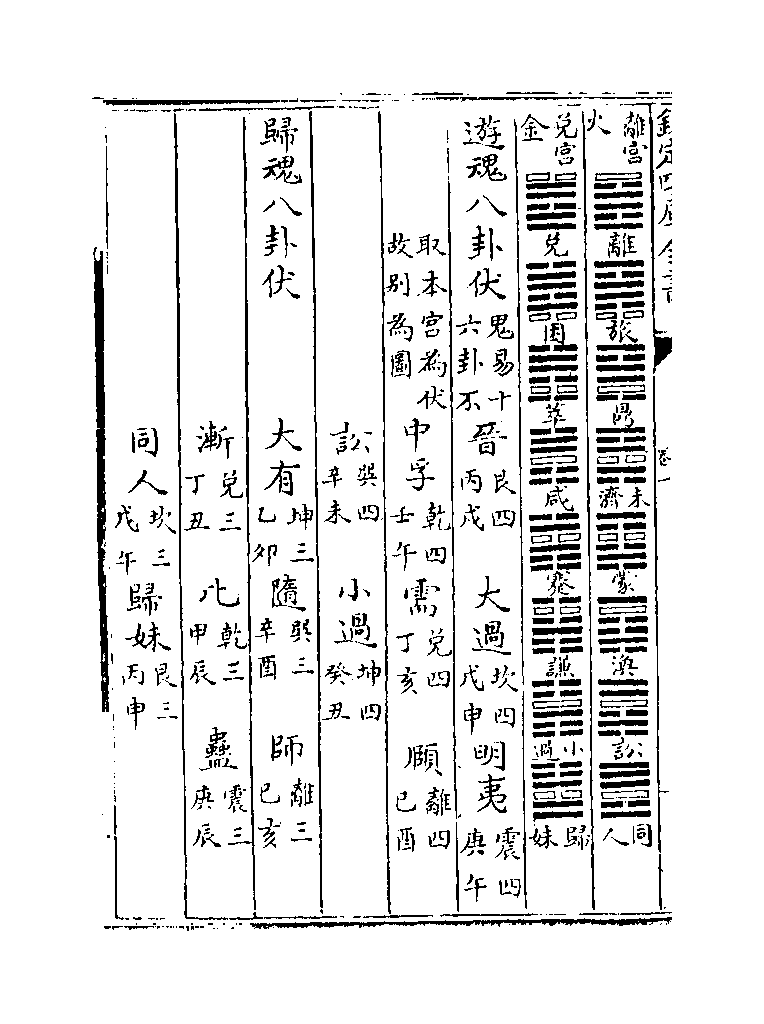 欽定四庫全書
卷一
離宮火 離 旅 鼎 未濟 蒙 渙 訟 同人
兌宮金 兌 困 萃 咸 蹇 謙 小過 歸妹
遊魂八卦伏 鬼易十六卦不 晉 艮四丙戌 大過 坎四戊申 明夷 震四庚午
取本宮為伏故别為圖 中孚 乾四壬午 需 兌四丁亥 頤 離四己酉
訟 巽四辛未 小過 坤四癸丑
歸魂八卦伏 大有 坤三乙卯 隨 巽三辛酉 師 離三己亥
漸 兌三丁丑 乾三甲辰 蠱 震三庚辰
同人 坎三戊午 歸妹 艮三丙申